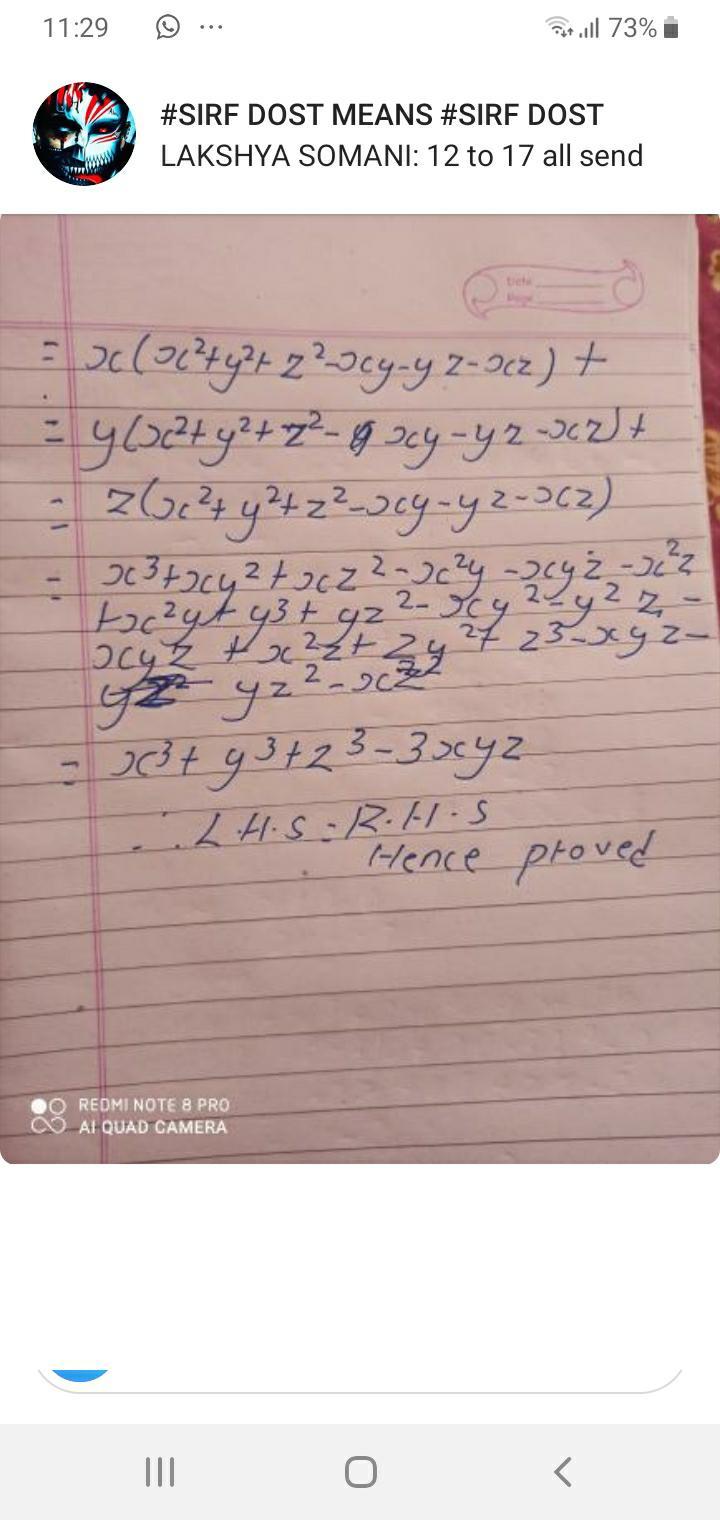 11:29 ... 73%
#SIRF DOST MEANS #SIRF DOST
LAKSHYA SOMANI: 12 to 17 all send
Date
Page
= x(x²+y²+z²-xy-yz-xz) +
= y(x²+y²+z²- xy-yz-xz)+
= z(x²+y²+z²-xy-yz-xz)
= x³+xy²+xz²-x²y-xyz-x²z
+x²y+y³+yz²-xy²-y²z-
xyz+x²z+zy²+z³-xyz-
yz²-xz²
= x³+y³+z³-3xyz
∴ L.H.S=R.H.S
Hence proved
REDMI NOTE 8 PRO
AI QUAD CAMERA